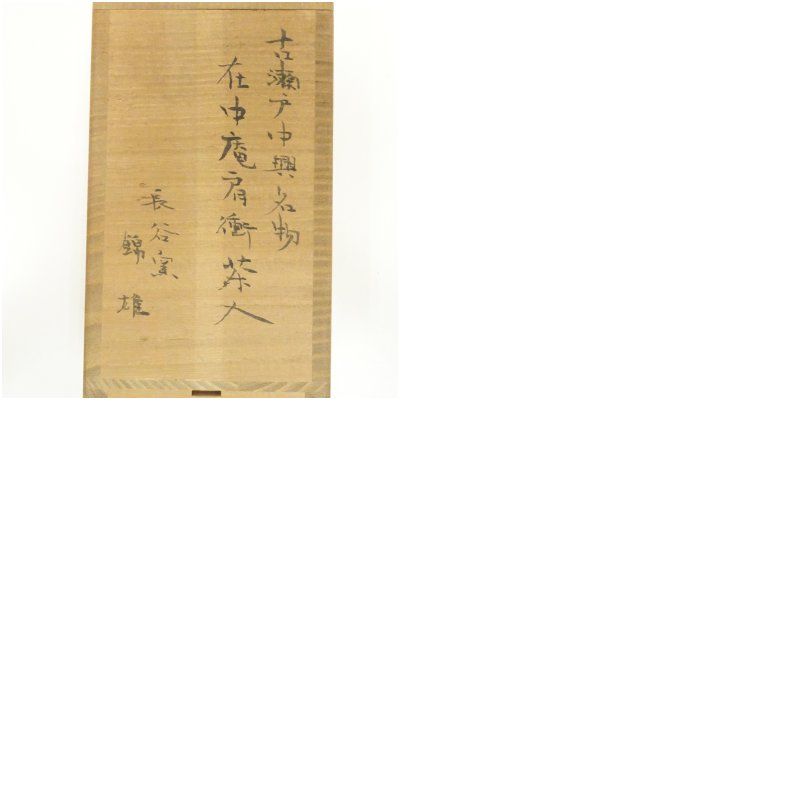 古瀬戸中興名物
在中庵肩衝茶入
長谷窯
錦雄